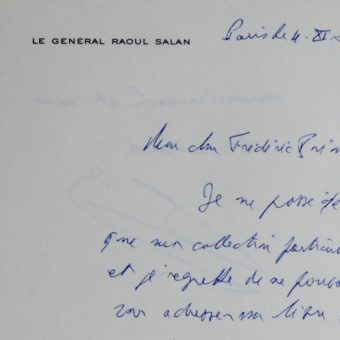 LE GÉNÉRAL RAOUL SALAN
Paris le 4-XI-
Mon cher Frédéric
Je ne possède
que ma collection particu
et je regrette de ne pouvo
vous adresser un livre